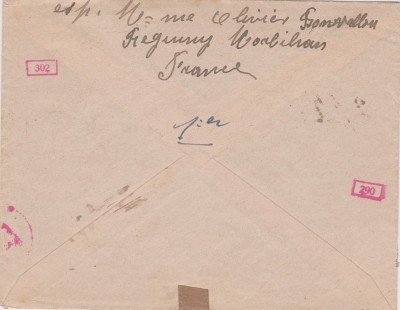 exp. Mme Olivier
Reguiny Morbihan
France
302
290